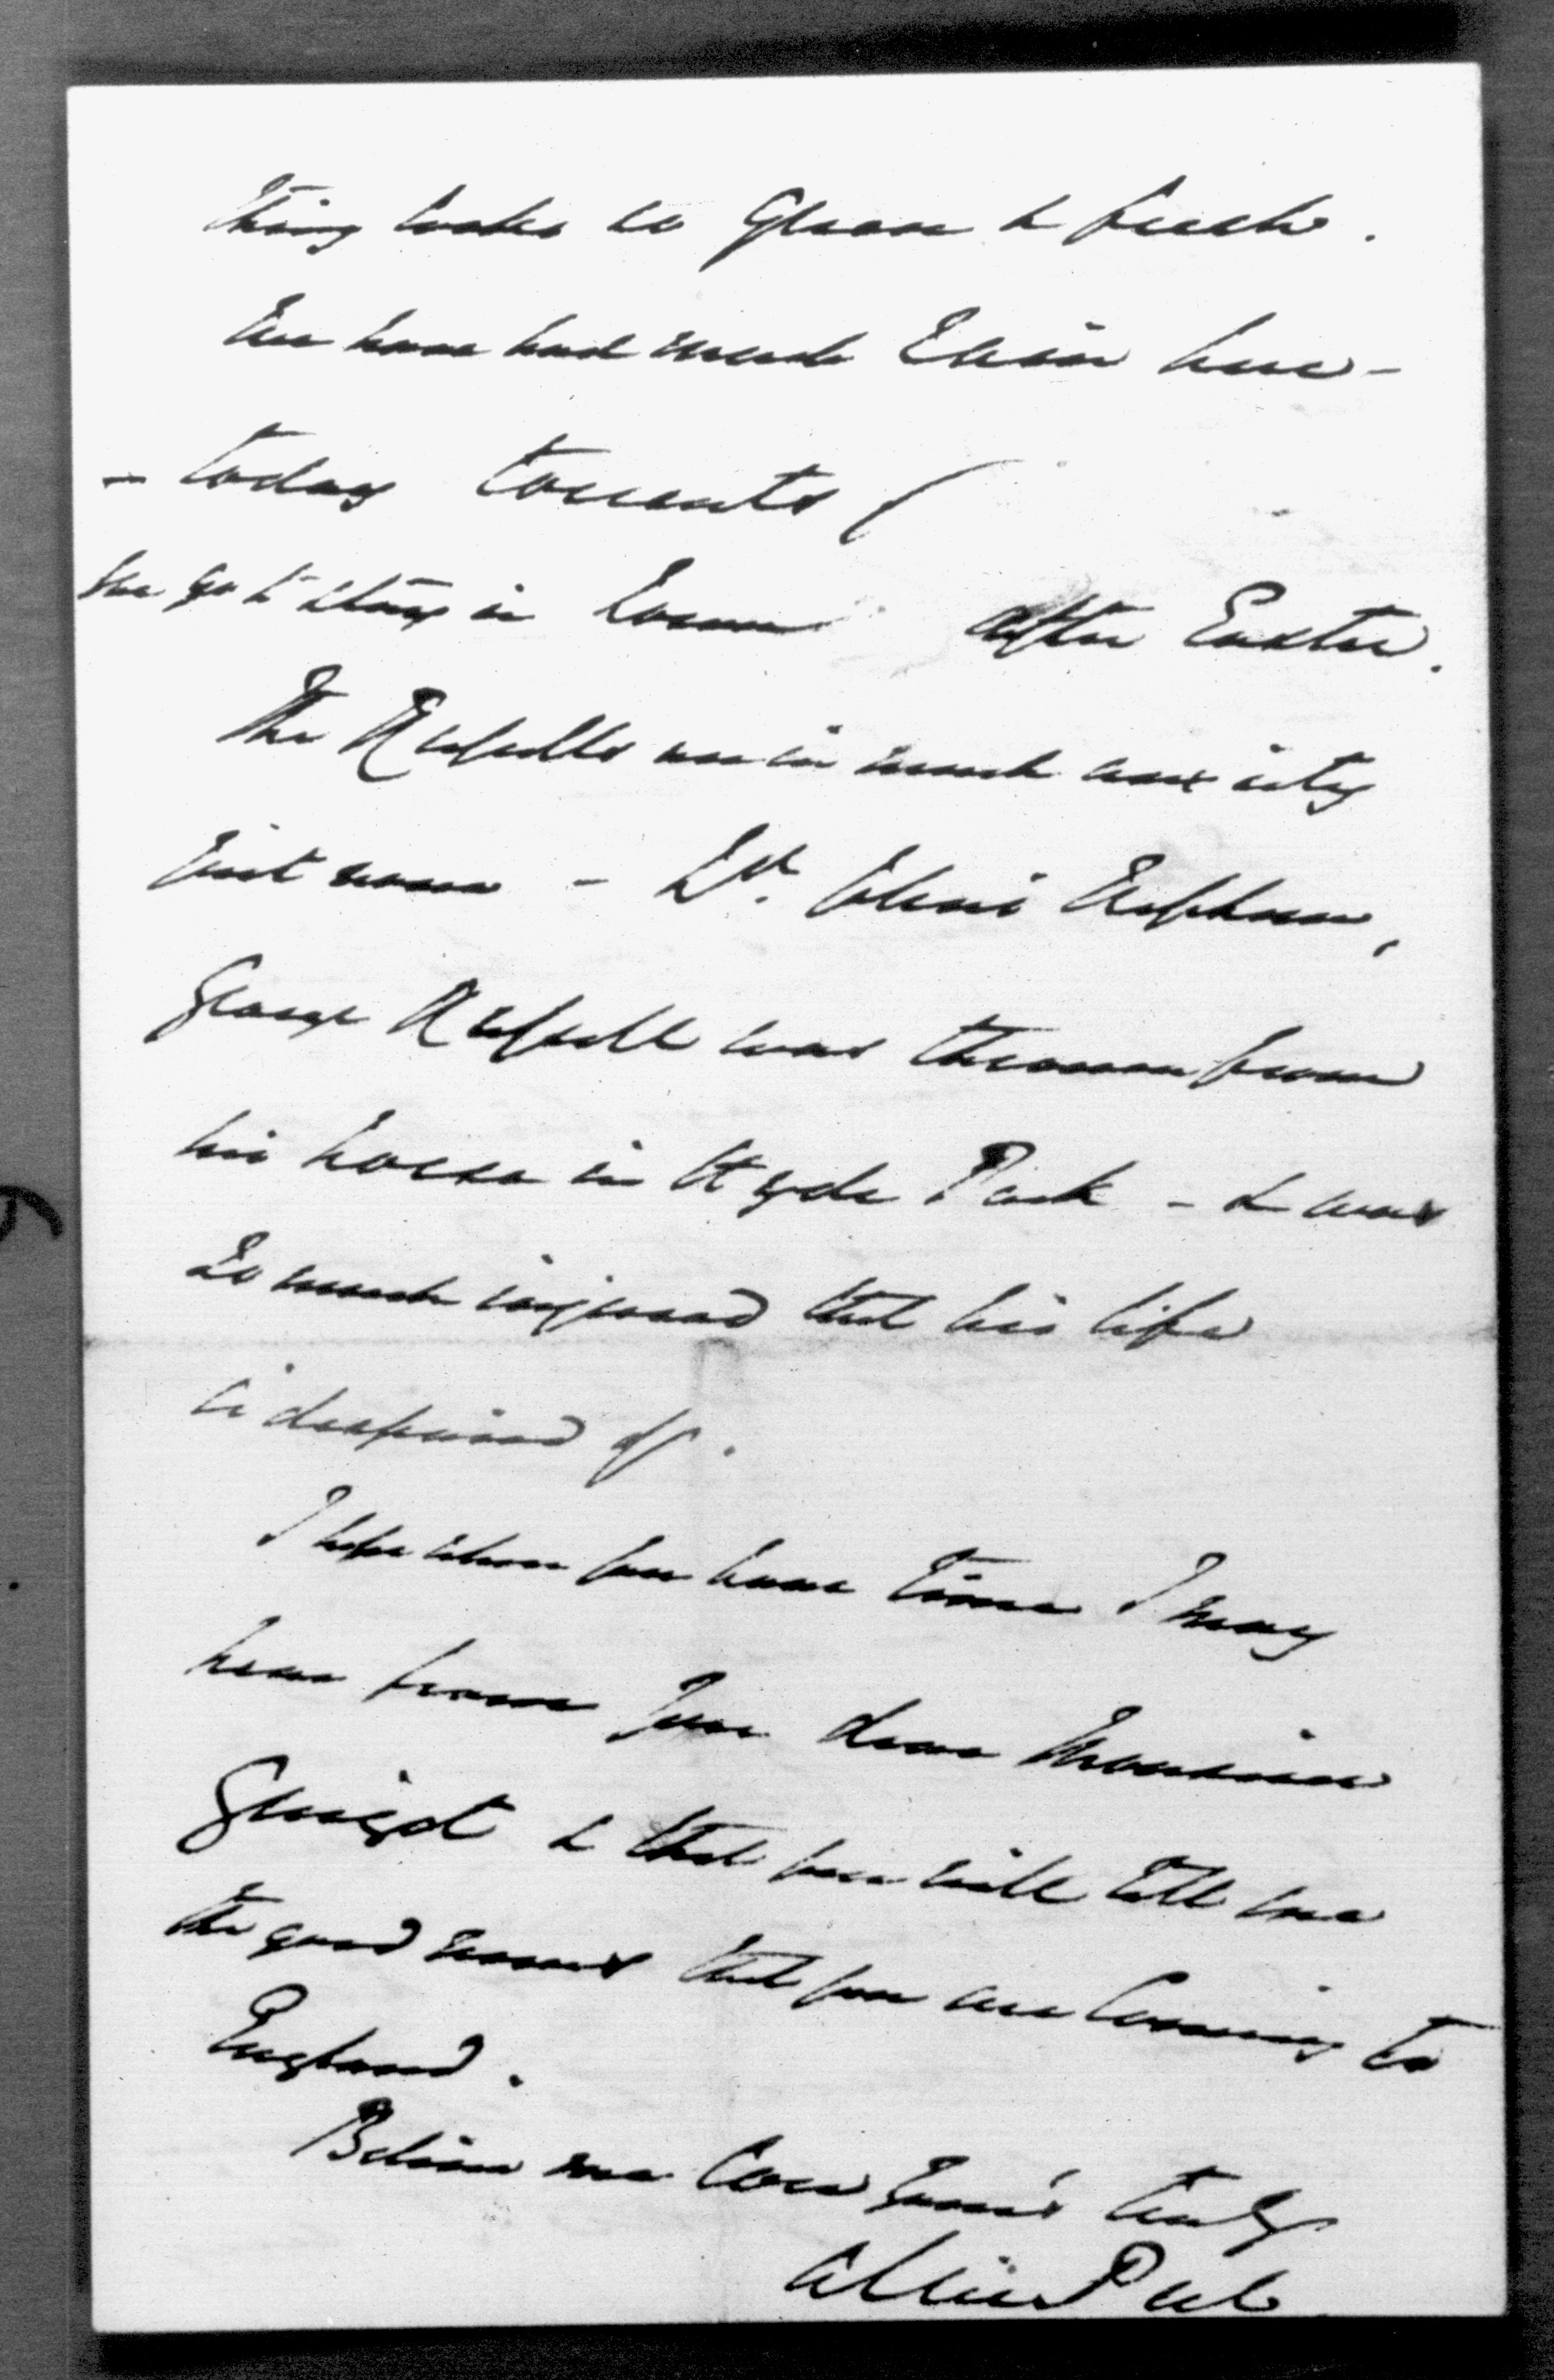 thing looks so Green & fresh.
We have had much Rain here -
- today torrents!
We go to stay in Town after Easter.
The Russells are in much anxiety
just now - Ld. John's Nephew,
George Russell was thrown from
his horse in Hyde Park - & was
so much injured that his life
is despaired of.
I hope when you have time I may
hear from you dear Monsieur
Guizot & that you will tell me
the good news that you are Coming to
England.
Believe me Ever Yours truly
Alice Peel